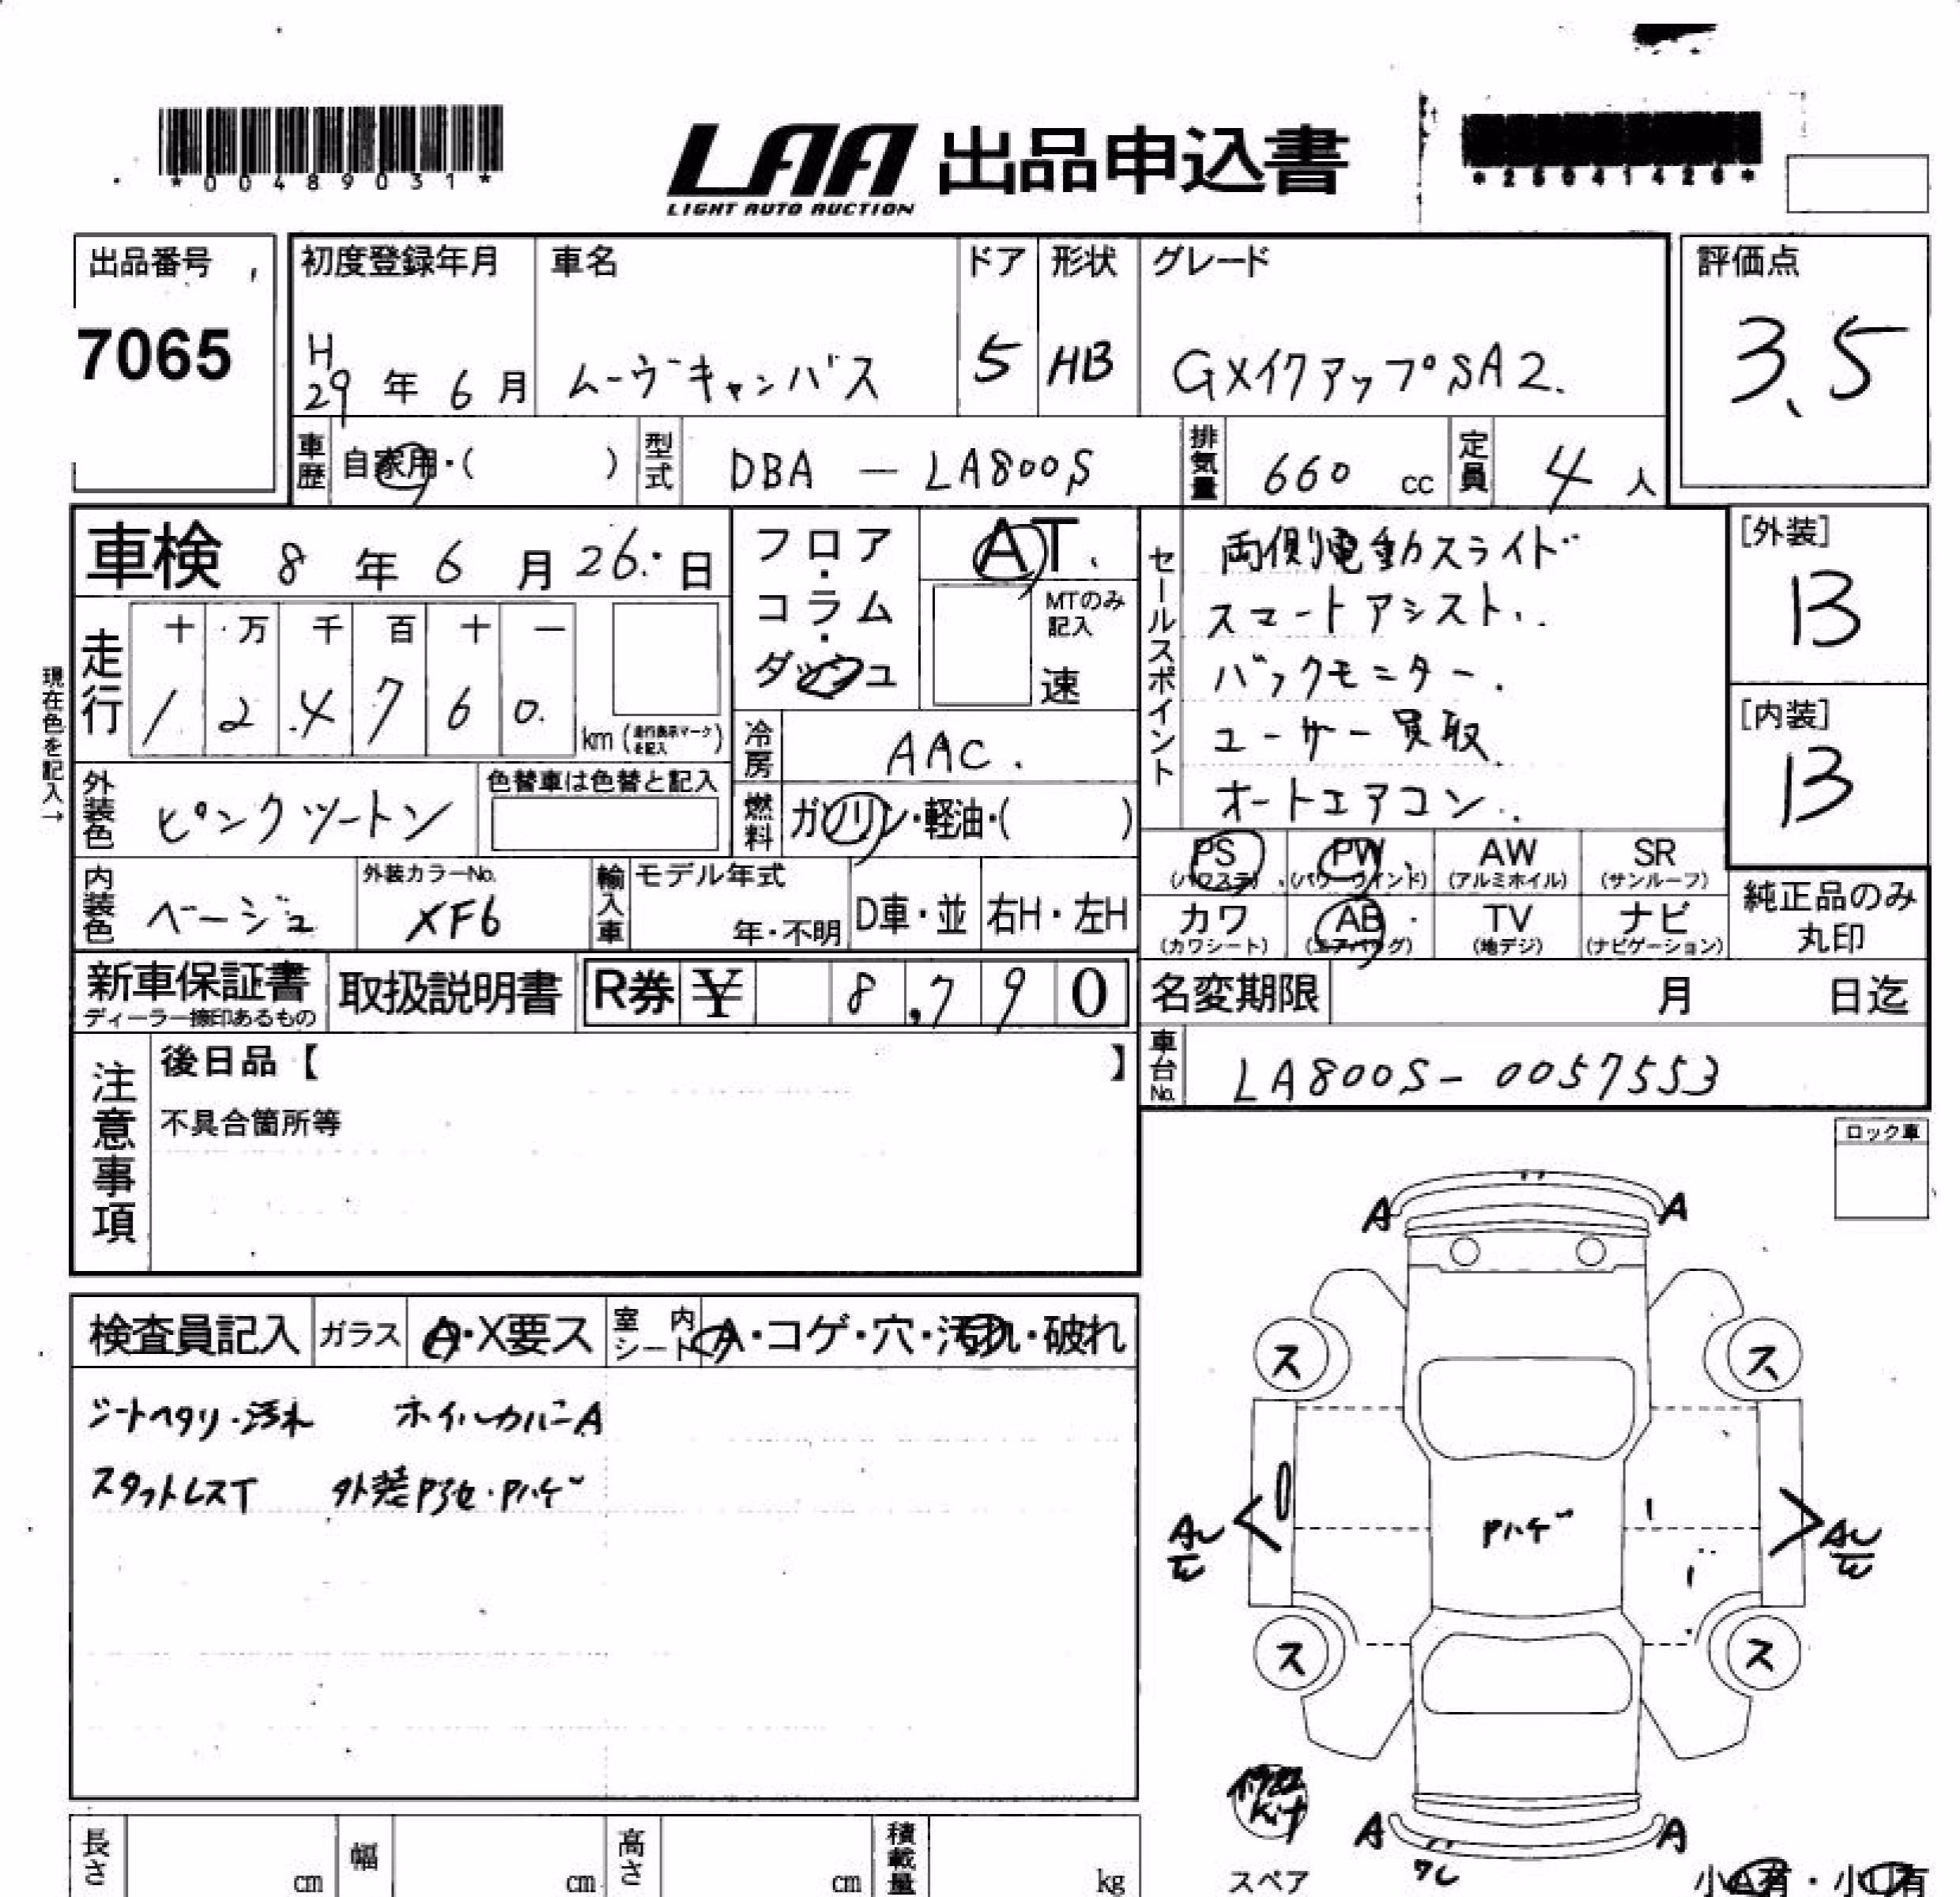 *00489031*
LAA 出品申込書
LIGHT AUTO AUCTION
*25041426*
出品番号
7065
初度登録年月
H29年6月
車名
ムーヴキャンバス
ドア
5
形状
HB
グレード
GXイクアップSA2.
評価点
3.5
車歴 自家用・( )
型式 DBA — LA800S
排気量 660 cc
定員 4人
車検 8年6月26日
フロア・コラム・ダッシュ
AT
MTのみ記入
速
セールスポイント
両側電動スライド
スマートアシスト.
バックモニター.
ユーザー買取
オートエアコン.
[外装]
B
[内装]
B
現在色を記入→
走行
十 万 千 百 十 一
1 2 4 7 6 0.
km (走行表示マークを記入)
冷房 AAC.
外装色 ピンクツートン
色替車は色替と記入
燃料 ガソリン・軽油・( )
PS (パワステ) PW (パワーウインド) AW (アルミホイル) SR (サンルーフ)
カワ (カワシート) AB (エアバッグ) TV (地デジ) ナビ (ナビゲーション)
純正品のみ丸印
内装色 ベージュ
外装カラーNo. XF6
輸入車 モデル年式 年・不明 D車・並 右H・左H
新車保証書
ディーラー捺印あるもの
取扱説明書
R券 ¥ 8,790
名変期限 月 日迄
車台No. LA800S-0057553
注意事項
後日品【 】
不具合箇所等
ロック車
検査員記入 ガラス A・X要ス 室内シート A・コゲ・穴・汚れ・破れ
シートヘタリ・汚れ ホイルカバーA
スタットレスT 外装Pアセ・Pハゲ
A A
ス ス
Pハゲ
ス ス
kit
スペア
A A
ワレ
小A有・小U有
長さ cm 幅 cm 高さ cm 積載量 kg